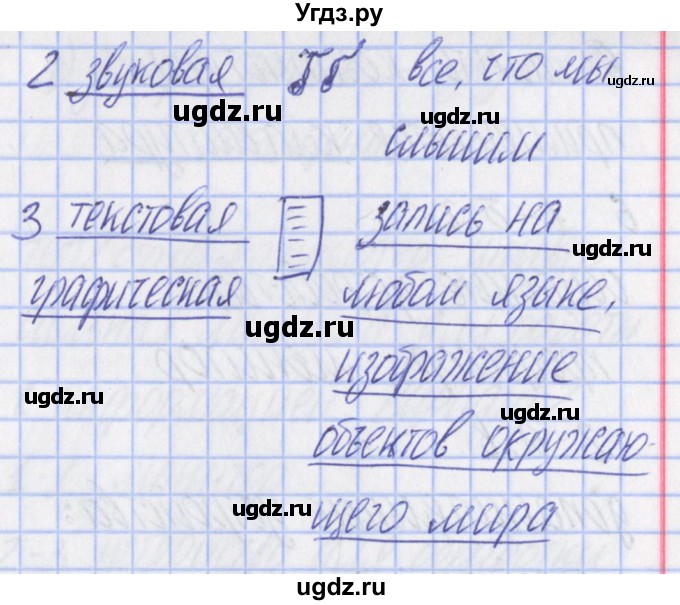 Угдз.ру
2 звуковая все, что мы
ugdz.ru
ugdz.ru
слышим
3 текстовая запись на
ugdz.ru
графическая любом языке,
ugdz.ru
изображение
ugdz.ru
ugdz.ru
объектов окружаю-
ugdz.ru
щего мира
ugdz.ru
ugdz.ru